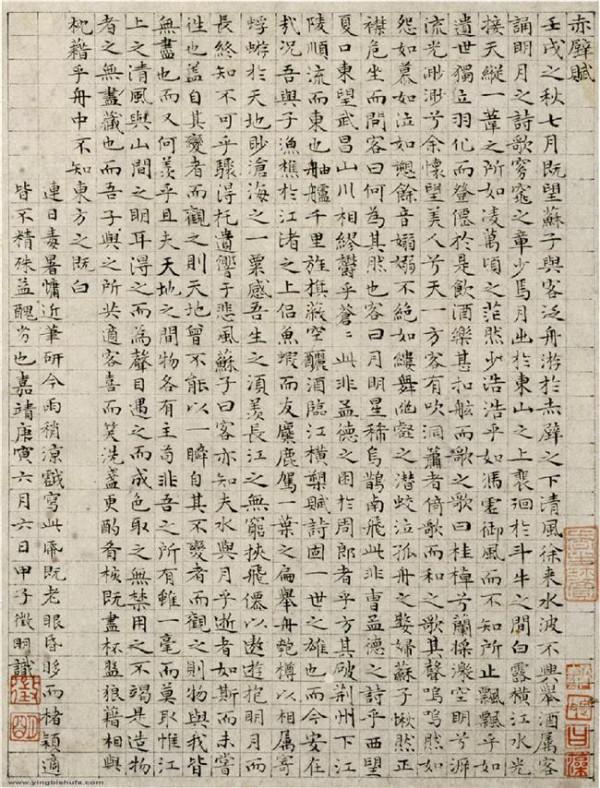 赤壁賦
壬戌之秋七月既望蘇子與客泛舟游於赤壁之下清風徐來水波不興舉酒屬客
誦明月之詩歌窈窕之章少焉月出於東山之上裵洄於斗牛之間白露橫江水光
接天縱一葦之所如凌萬頃之茫然少浩浩乎如馮虛御風而不知所止飄飄乎如
遺世獨立羽化而登僊於是飲酒樂甚扣舷而歌之歌曰桂棹兮蘭槳擊空明兮泝
流光渺渺兮余懷望美人兮天一方客有吹洞簫者倚歌而和之歌其聲嗚嗚然如
怨如慕如泣如愬餘音嫋嫋不絕如縷舞幽壑之潛蛟泣孤舟之嫠婦蘇子愀然正
襟危坐而問客曰何為其然也客曰月明星稀烏鵲南飛此非曹孟德之詩乎西望
夏口東望武昌山川相繆鬱乎蒼〻此非孟德之困於周郎者乎方其破荊州下江
陵順流而東也舳艫千里旌旗蔽空釃酒臨江橫槊賦詩固一世之雄也而今安在
哉況吾與子漁樵於江渚之上侶魚蝦而友麋鹿駕一葉之扁舉匏樽以相屬寄
蜉蝣於天地眇滄海之一粟感吾生之須羨長江之無窮挾飛僊以遨遊抱明月而
長終知不可乎驟得托遺響于悲風蘇子曰客亦知夫水與月乎逝者如斯而未嘗
往也盖自其變者而觀之則天地曾不能以一瞬自其不變者而觀之則物與我皆
無盡也而又何羨乎且夫天地之間物各有主苟非吾之所有雖一毫而莫取惟江
上之清風與山間之明耳得之而為聲目遇之而成色取之無禁用之不竭是造物
者之無盡藏也而吾子與之所共適客喜而笑洗盞更酌肴核既盡杯盤狼藉相與
枕藉乎舟中不知東方之既白
連日毒暑慵近筆研今雨稍涼戲寫此紙既老眼昏眵而楮穎適
皆不精殊益醜劣也嘉靖庚寅六月六日甲子徵明識
徵明
www.yingbishufa.com